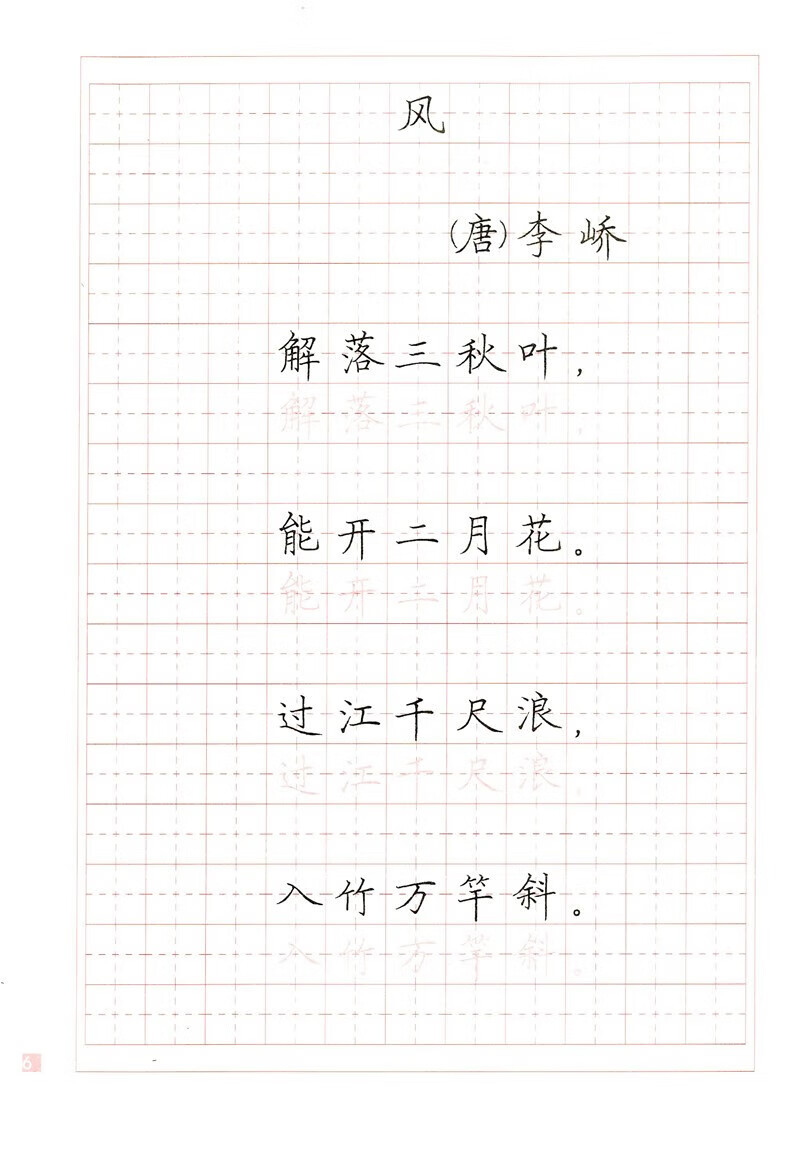 风
(唐)李峤
解落三秋叶，
解落三秋叶，
能开二月花。
能开二月花。
过江千尺浪，
过江千尺浪，
入竹万竿斜。
入竹万竿斜。
6